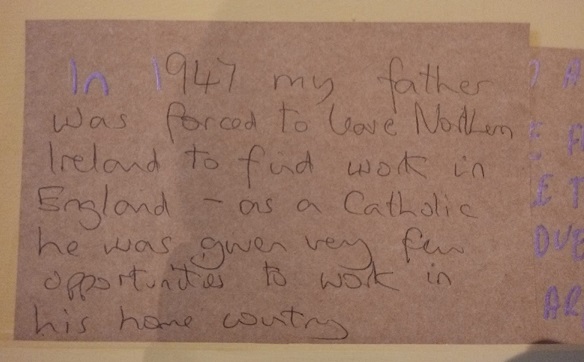 In 1947 my father
was forced to leave Northern
Ireland to find work in
England - as a Catholic
he was given very few
opportunities to work in
his home country